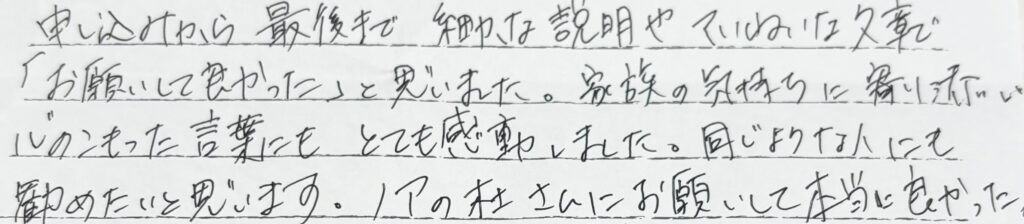 申し込みから 最後まで 細かな説明やていねいな文章で
「お願いして良かった」と思いました。家族の気持ちに寄り添い
心のこもった言葉にも とても感動しました。同じような人にも
勧めたいと思います。ノアの杜さんにお願いして本当に良かった